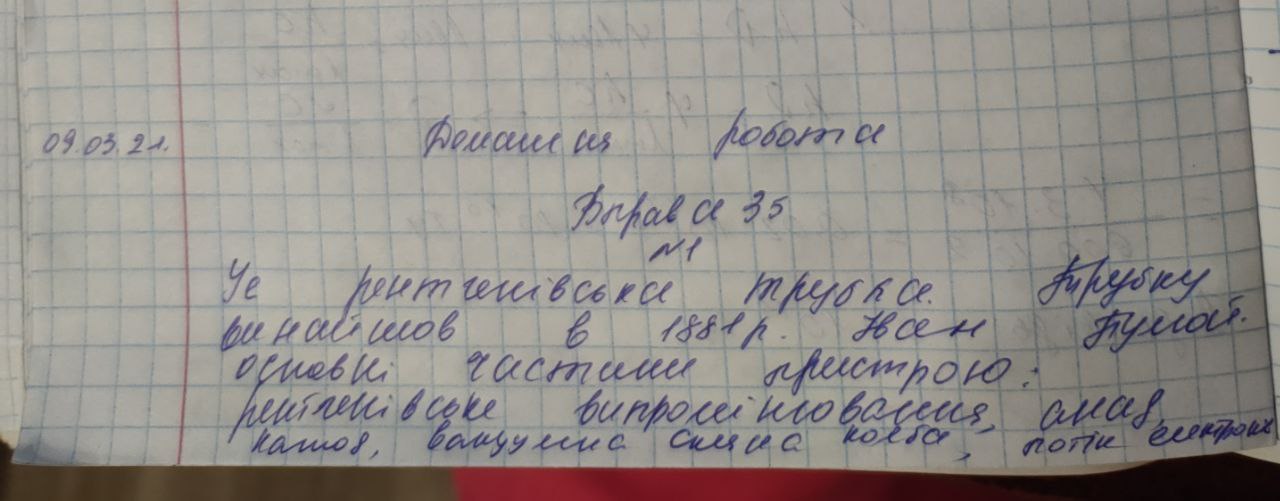 09.03.21. Домашня робота
Вправа 35
№1
Це рентгенівська трубка. Трубку
винайшов в 1881р. Іван Пулюй.
основні частини пристрою:
рентгенівське випромінювання, анод,
катод, вакуумна скляна колба, потік електронів